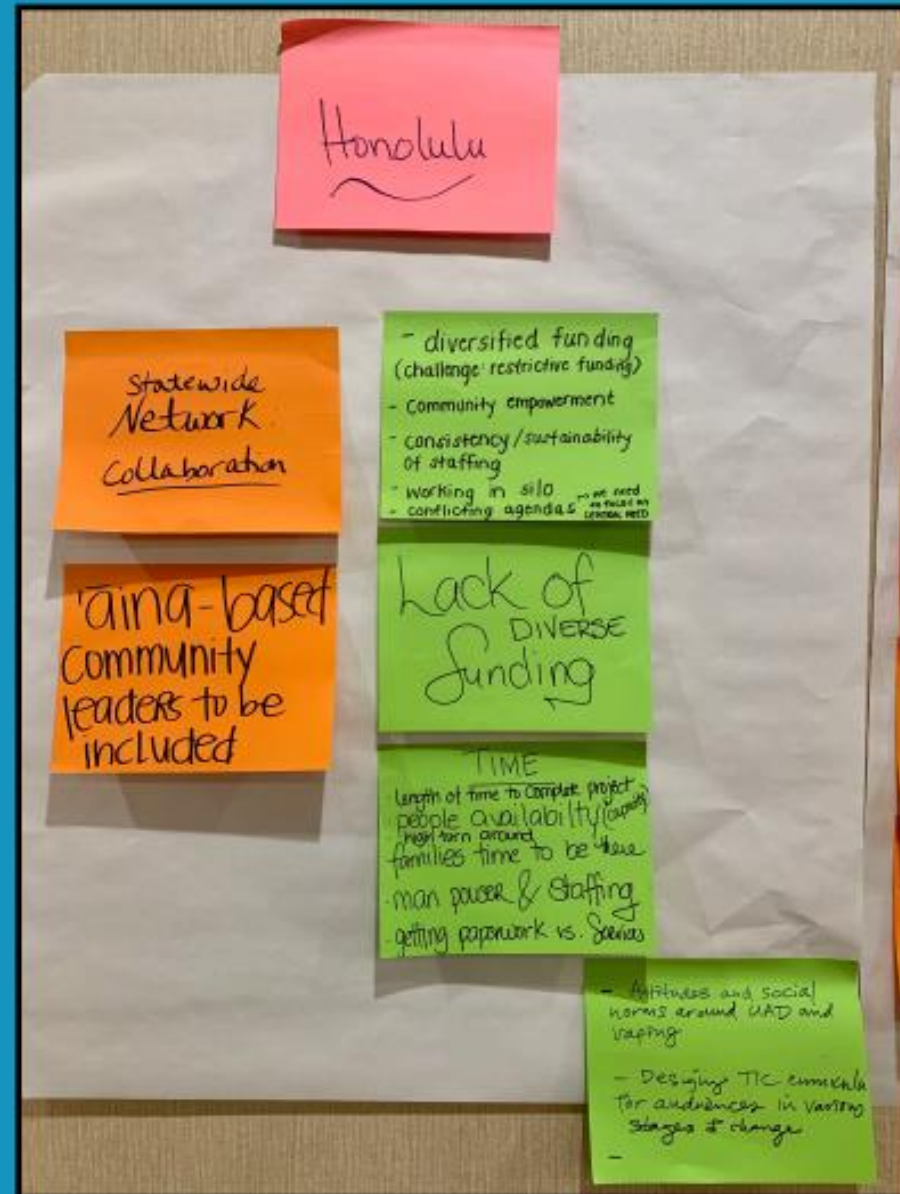 Honolulu
Statewide
Network
Collaboration
'āina-based
Community
leaders to be
included
- diversified funding
(challenge: restrictive funding)
- Community empowerment
- consistency/sustainability
of staffing
- working in silo → we need
- conflicting agendas to focus on
CENTRAL NEED
Lack of
DIVERSE
funding
TIME
· length of time to complete project
· people availabilty (capacity)
high turn around
families time to be there
· man power & Staffing
· getting paperwork vs. Services
- Attitudes and social
norms around UAD and
vaping
- Designing TIC curricula
for audiences in various
stages of change
-